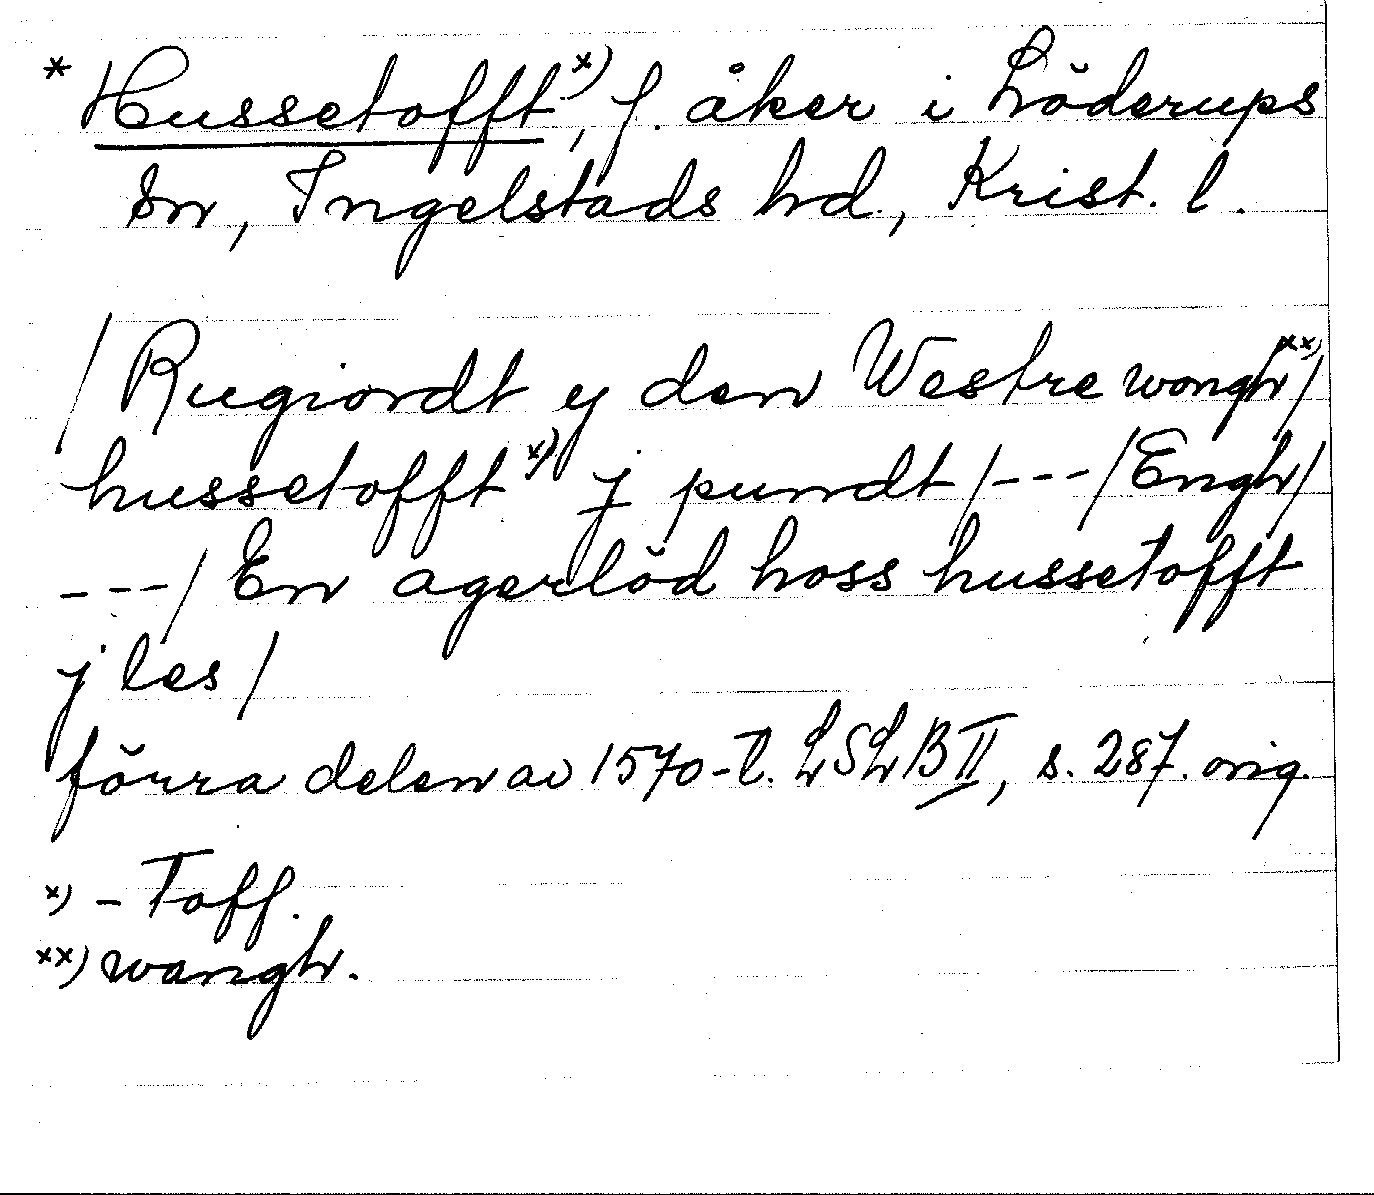 * Hussetofft x), f. åker i Löderups
sn, Ingelstads hd., Krist. l.
/ Rugiordt y den Westre wongh xx)/
hussetofft x) j pundt /---/ Engh /
---/ En agerlöd hoss hussetofft
j les /
förra delen av 1570-t. LSLB II, s. 287. orig.
x) - Toff.
xx) wangh.